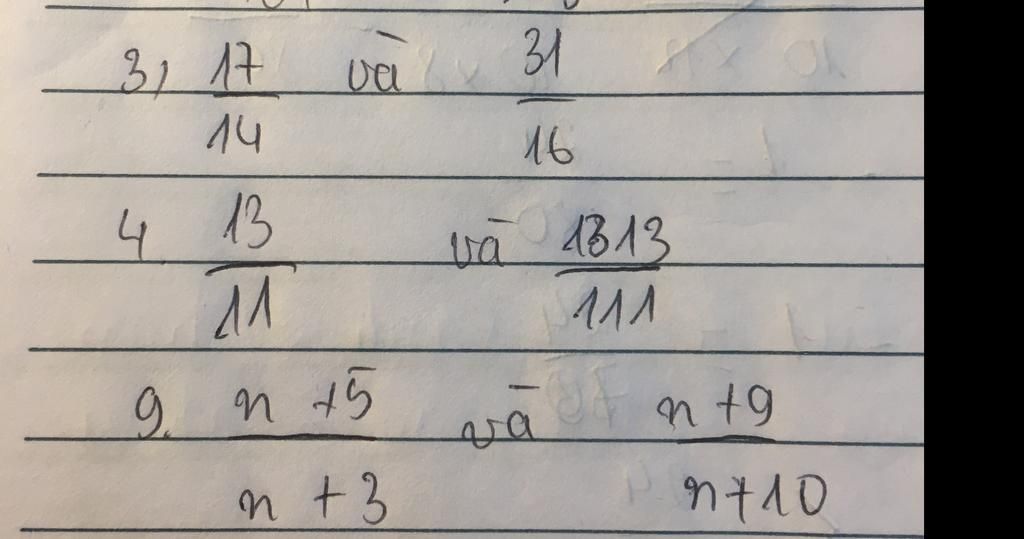 3, 17/14 và 31/16
4 13/11 và 1313/111
9. n + 5/n + 3 và n + 9/n + 10